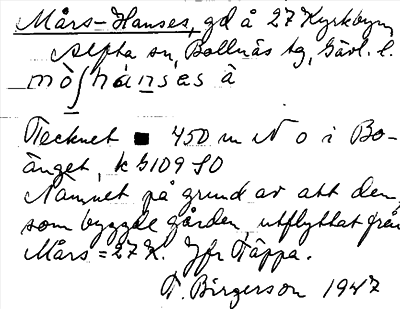 Mårs-Hanses, gd å 27 Kyrkbyn,
Alfta sn, Bollnäs tg, Gävl. l.
mòʃhánsəs å
Tecknet ■ 450 m N o i Bo-
änget, k bl 109 SO
Namnet på grund av att den,
som byggde gården, utflyttat från
Mårs = 27 K. Jfr Täppa.
T. Birgerson 1947